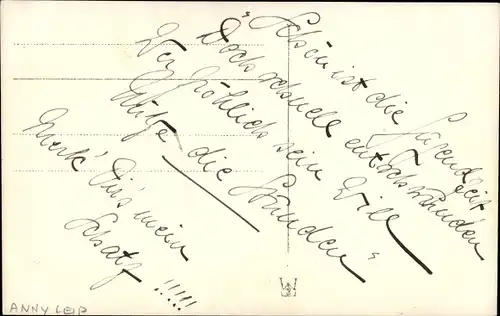 "Schön ist die Jugendzeit
Doch schnell entschwunden
Wer fröhlich sein Will
Nütze die Stunden"
Merk' Dir's mein
Schatz!!!!!
ANNY LEIP